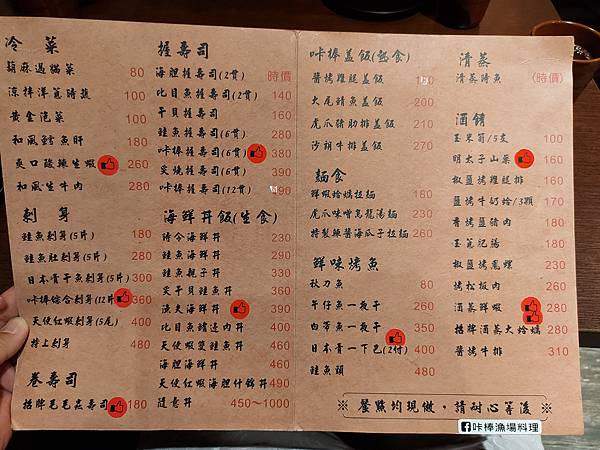 冷菜
80
涼拌洋蔥鮪魚 100
黃金泡菜 100
和風鱈魚肝 180
爽口酸辣生蝦 260
和風生牛肉 280
刺身
鮭魚刺身(5片) 180
鮭魚肚刺身(5片) 280
日本青干魚刺身(5片) 300
咔棒綜合刺身(12片) 360
天使紅蝦刺身(5尾) 400
特上刺身 480
卷壽司
招牌毛毛蟲壽司 180
握壽司
海膽握壽司(2貫) 時價
比目魚握壽司(2貫) 140
干貝握壽司 160
鮭魚握壽司(6貫) 280
咔棒握壽司(6貫) 380
炙燒握壽司(6貫) 390
咔棒握壽司(12貫) 490
海鮮丼飯(生食)
時令海鮮丼 230
鮭魚海鮮丼 290
鮭魚親子丼 330
炙干貝鮭魚丼 360
漁夫海鮮丼 390
比目魚鰭邊肉丼 400
天使蝦雙鮭魚丼 460
海膽海鮮丼 460
天使紅蝦海膽什錦丼 490
隨意丼 450~1000
咔棒蓋飯(熟食)
醬烤雞腿蓋飯
大尾鯖魚蓋飯 200
虎爪豬肋排蓋飯 210
沙朗牛排蓋飯 270
麵食
鮮蝦蛤蠣拉麵 180
虎爪味噌烏龍湯麵 230
特製辣醬海瓜子拉麵 260
鮮味烤魚
秋刀魚 80
午仔魚一夜干 260
白帶魚一夜干 350
日本青一下巴(2付) 400
鮭魚頭 480
清蒸
清蒸時魚 (時價)
酒餚
玉米筍/5支 100
明太子山藥 160
椒鹽烤雞腿排 160
鹽烤牛奶蛤/3顆 170
香烤鹽豬肉 180
180
椒鹽烤魷螺 230
烤松板肉 260
酒蒸鮮蝦 280
招牌酒蒸大蛤蠣 280
醬烤牛排 310
※ 餐點均現做,請耐心等後 ※
咔棒漁場料理